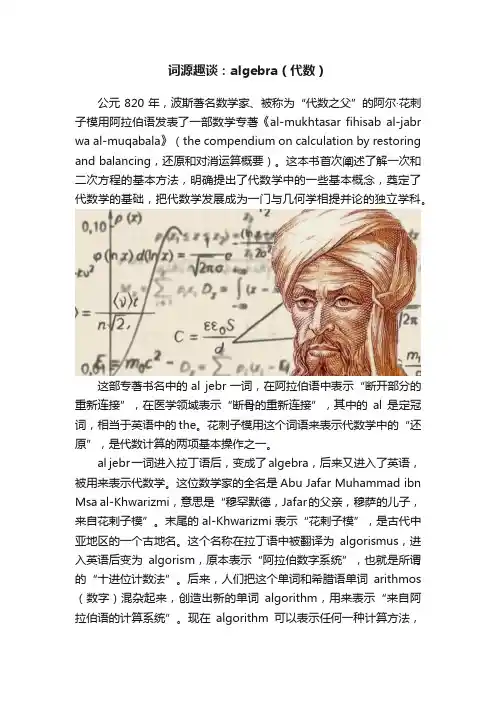 词源趣谈：algebra（代数）
公元 820 年，波斯著名数学家、被称为“代数之父”的阿尔·花剌
子模用阿拉伯语发表了一部数学专著《al-mukhtasar fihisab al-jabr
wa al-muqabala》（the compendium on calculation by restoring
and balancing，还原和对消运算概要）。这本书首次阐述了解一次和
二次方程的基本方法，明确提出了代数学中的一些基本概念，奠定了
代数学的基础，把代数学发展成为一门与几何学相提并论的独立学科。
0,10
ρ (x)
C = εε₀S
d
这部专著书名中的 al jebr 一词，在阿拉伯语中表示“断开部分的
重新连接”，在医学领域表示“断骨的重新连接”，其中的 al 是定冠
词，相当于英语中的 the。花剌子模用这个词语来表示代数学中的“还
原”，是代数计算的两项基本操作之一。
al jebr 一词进入拉丁语后，变成了 algebra，后来又进入了英语，
被用来表示代数学。这位数学家的全名是 Abu Jafar Muhammad ibn
Msa al-Khwarizmi，意思是“穆罕默德，Jafar 的父亲，穆萨的儿子，
来自花剌子模”。末尾的 al-Khwarizmi 表示“花剌子模”，是古代中
亚地区的一个古地名。这个名称在拉丁语中被翻译为 algorismus，进
入英语后变为 algorism，原本表示“阿拉伯数字系统”，也就是所谓
的“十进位计数法”。后来，人们把这个单词和希腊语单词 arithmos
（数字）混杂起来，创造出新的单词 algorithm，用来表示“来自阿
拉伯语的计算系统”。现在 algorithm 可以表示任何一种计算方法，